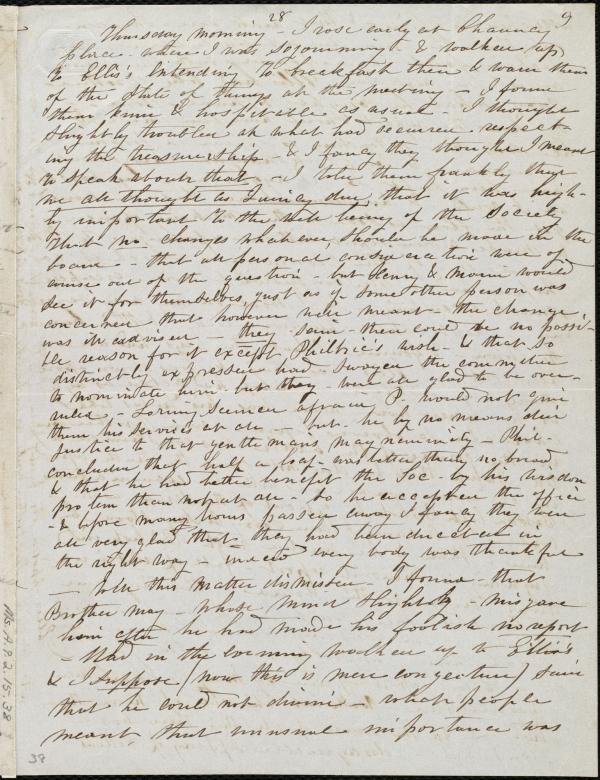 28
9
Thursday morning - I rose early at Chauncy
place - where I was sojourning - & walked up
to Ellis's intending to breakfast there & warn them
of the state of things at the meeting - I found
them kind & hospitable as usual - I thought
slightly troubled at what had occurred respect-
ing the treasurership - & I fancy they thought I meant
to speak about that - I told them frankly that
we all thought as Quincy did, that it was high-
ly important to the well being of the Society
that no changes whatever should be made in the
board - - that all personal consideration were of
course out of the question - but Henry & would
see it for themselves, just as if some other person was
concerned that however well meant the change
was ill advised - they said there could be no possi-
ble reason for it except Philbric's wish - & that so
distinctly expressed had swayed the committee
to nominate him - but they were all glad to be over-
ruled - Loring seemed afraid P. would not give
them his services at all - but he by no means did
justice to that gentlemans magnanimity - Phil-
concluded that half a loaf was better than no bread
& that he had better benefit the Soc - by his wisdom
pro tem than not at all - so he accepted the office
- & before many hours passed away I fancy they were
all very glad that they had been directed in
the right way - indeed every body was thankful
- With this matter dismissed - I found - that
Brother May - whose mind slightly - misgave
him after he had made his foolish no report
- Had in the evening walked up to Ellis's
& I suppose (now this is mere congecture) said
that he could not divine - what people
meant that unusual importance was
Ms.A.9.2.15.38
38